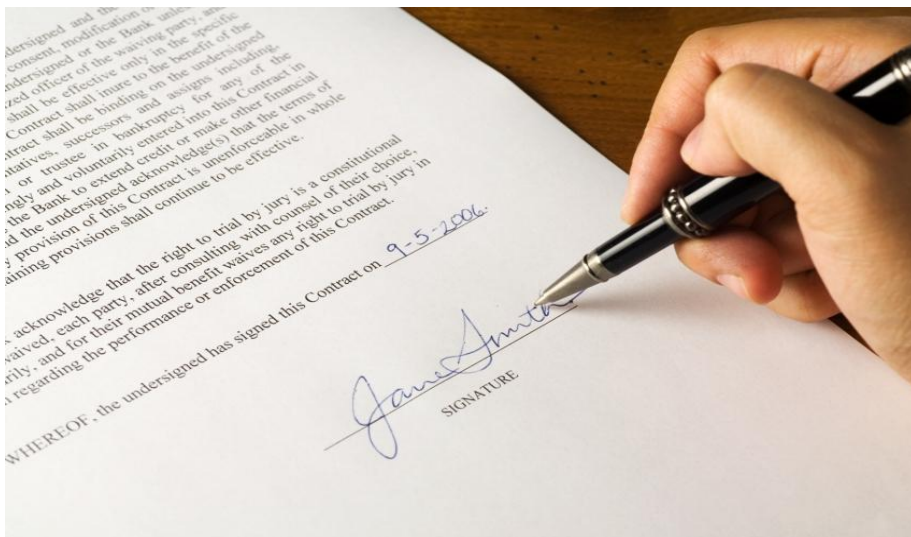 undersigned and the
consent, modification o
undersigned or the Bank unles
zed officer of the waiving party, and
shall be effective only in the specific
Contract shall inure to the benefit of the
tract shall be binding on the undersigned
ntatives, successors and assigns including,
or trustee in bankruptcy for any of the
ngly and voluntarily entered into this Contract in
the Bank to extend credit or make other financial
d the undersigned acknowledge(s) that the terms of
y provision of this Contract is unenforceable in whole
aining provisions shall continue to be effective.
acknowledge that the right to trial by jury is a constitutional
waived, each party, after consulting with counsel of their choice,
rily, and for their mutual benefit waives any right to trial by jury in
n regarding the performance or enforcement of this Contract.
WHEREOF, the undersigned has signed this Contract on 9-5-2006.
Jane Smith
SIGNATURE